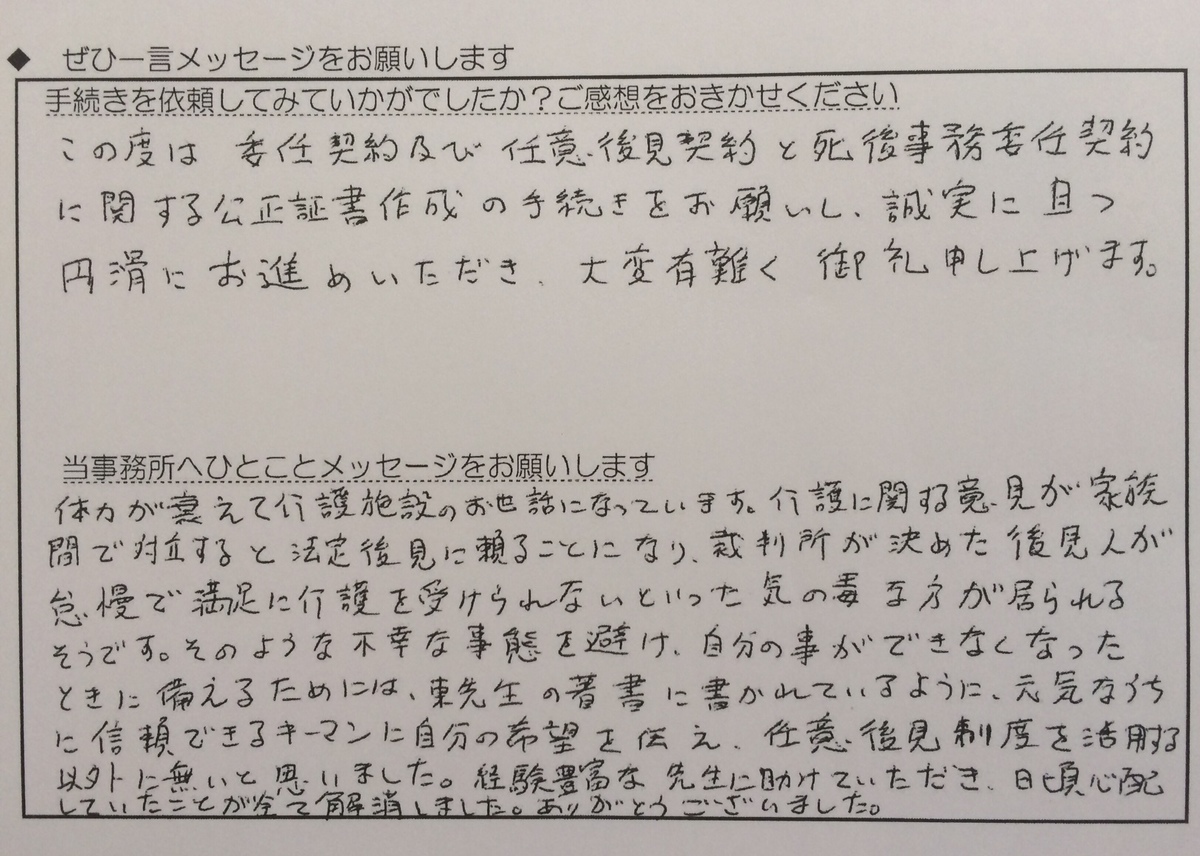 ◆ ぜひ一言メッセージをお願いします
手続きを依頼してみていかがでしたか？ご感想をおきかせください
この度は 委任契約及び 任意後見契約と死後事務委任契約
に関する公正証書作成の手続きをお願いし、誠実に且つ
円滑にお進めいただき、大変有難く 御礼申し上げます。
当事務所へひとことメッセージをお願いします
体力が衰えて介護施設のお世話になっています。介護に関する意見が家族
間で対立すると法定後見に頼ることになり、裁判所が決めた後見人が
怠慢で満足に介護を受けられないといった気の毒な方が居られる
そうです。そのような不幸な事態を避け、自分の事ができなくなった
ときに備えるためには、東先生の著書に書かれているように、元気なうち
に信頼できるキーマンに自分の希望を伝え、任意後見制度を活用する
以外に無いと思いました。経験豊富な先生に助けていただき、日頃心配
していたことが全て解消しました。ありがとうございました。